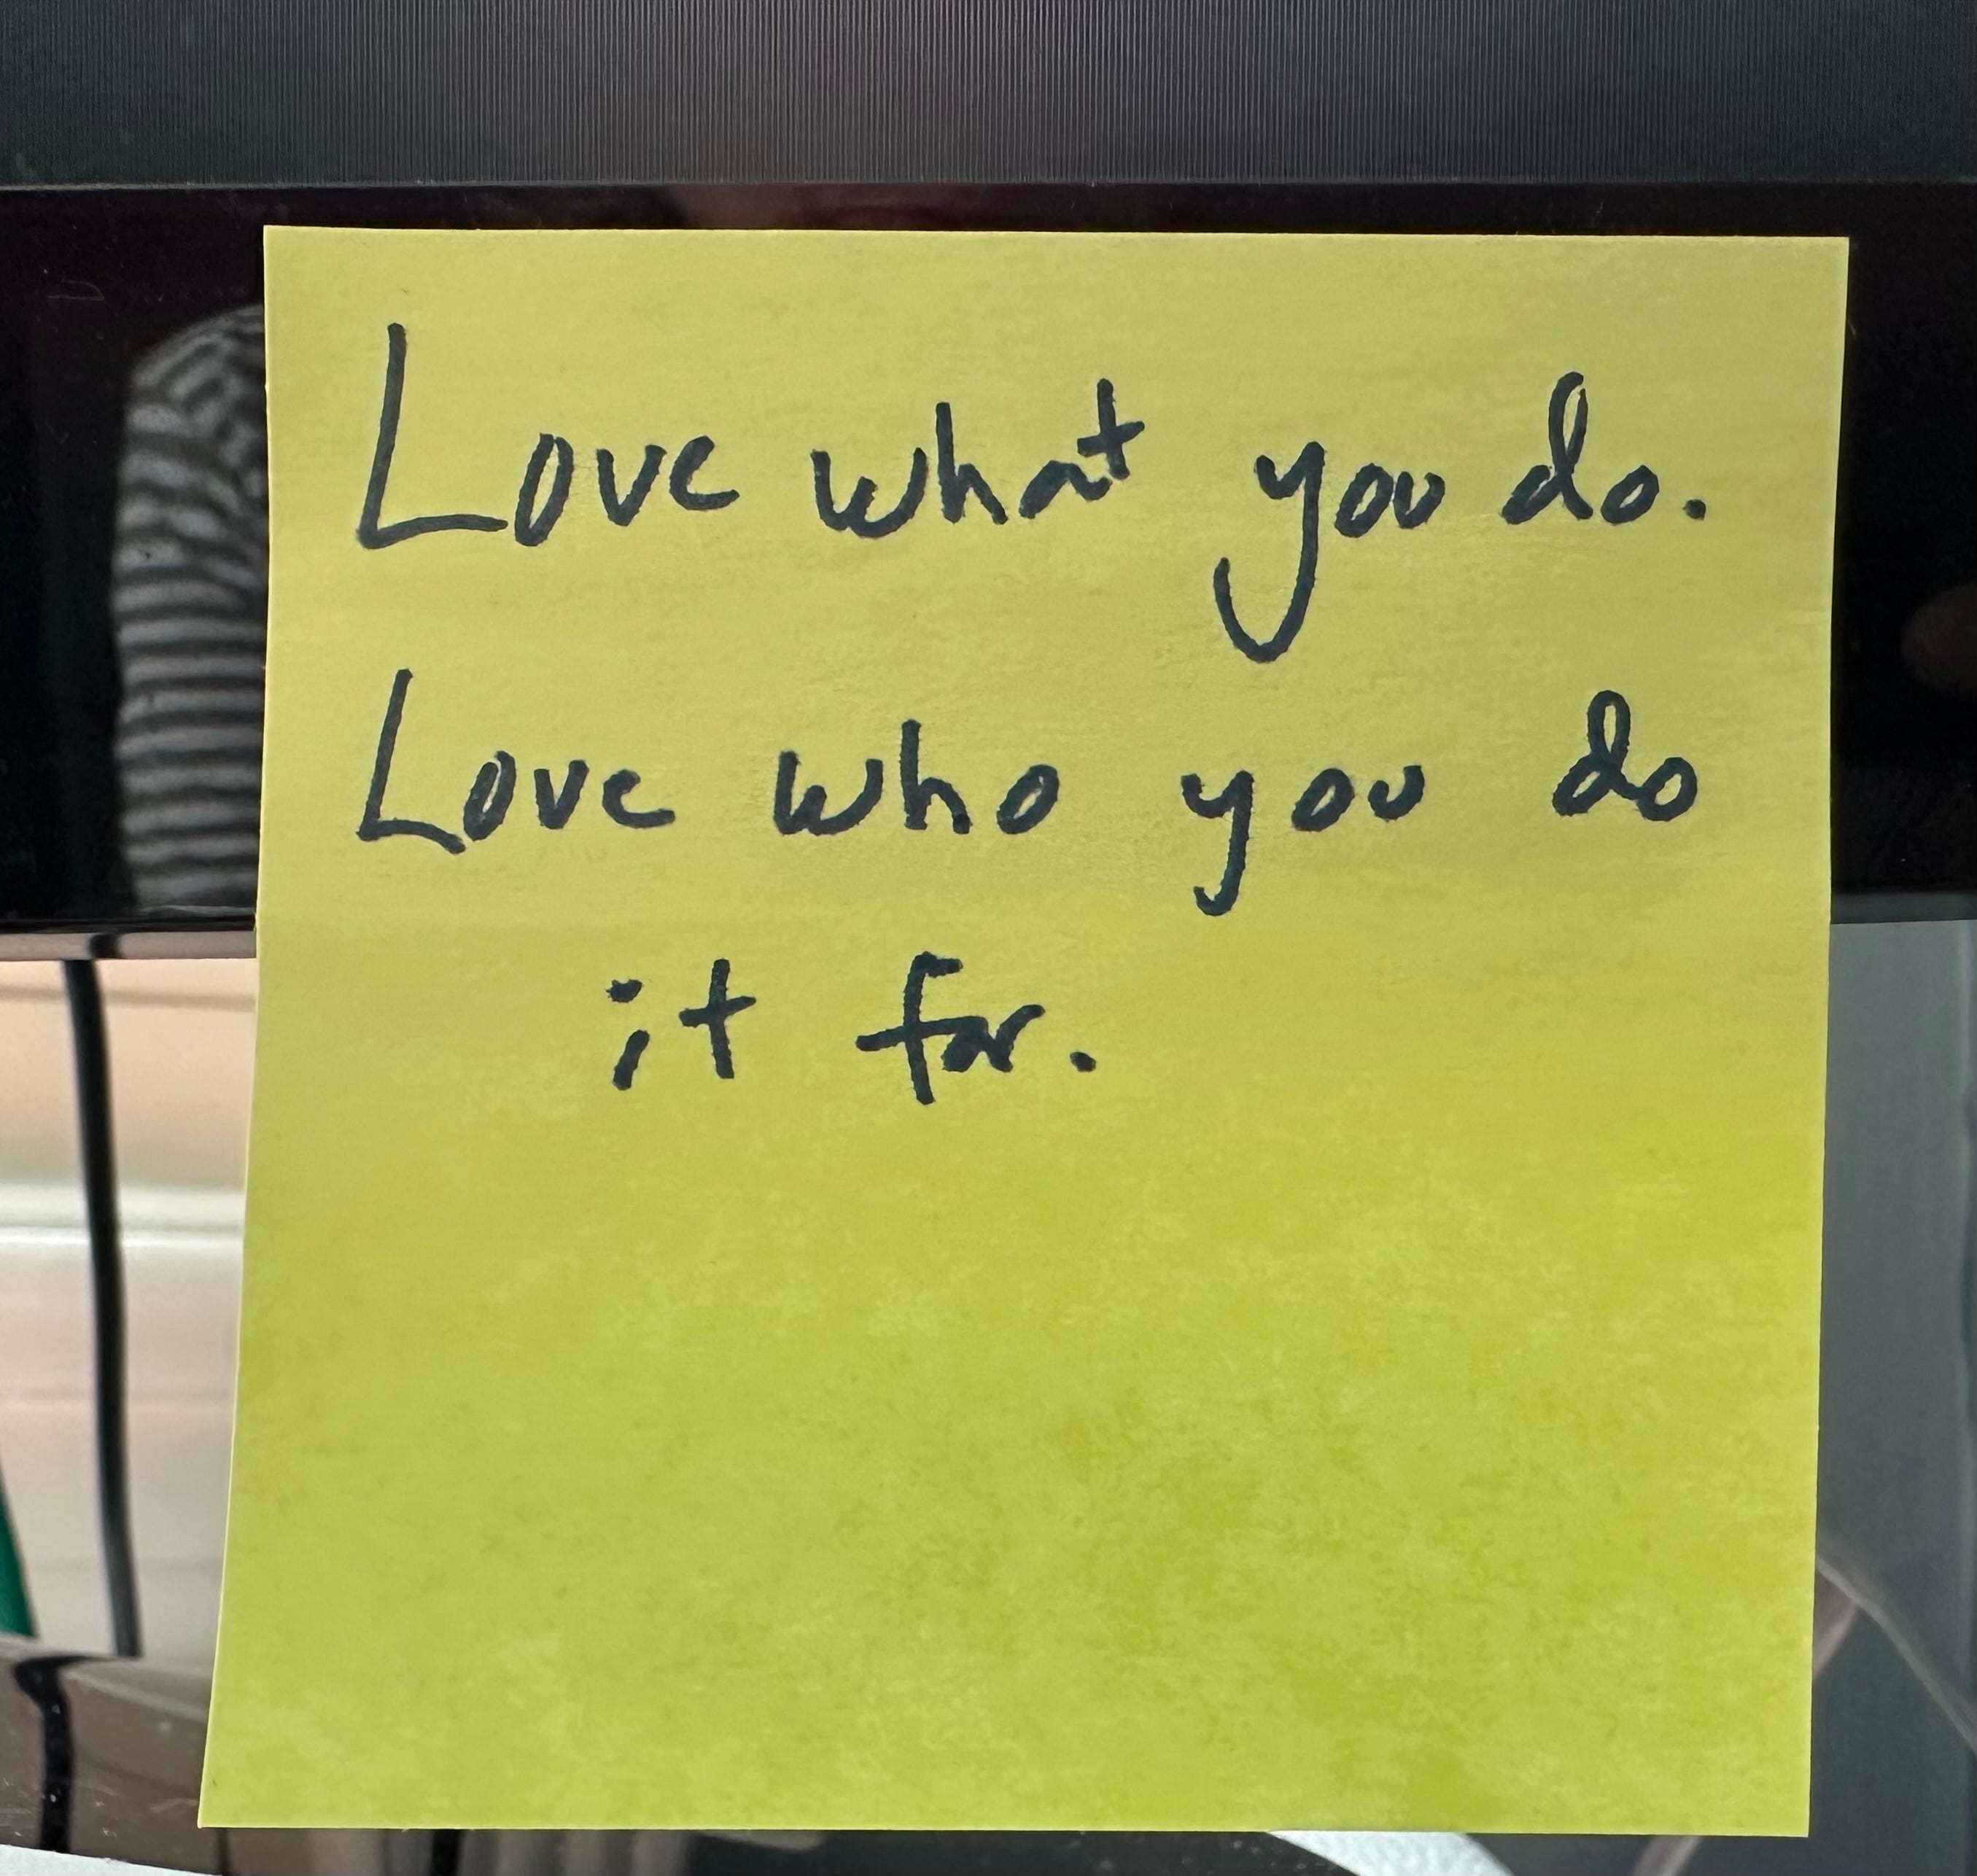 Love what you do.
Love who you do
it for.